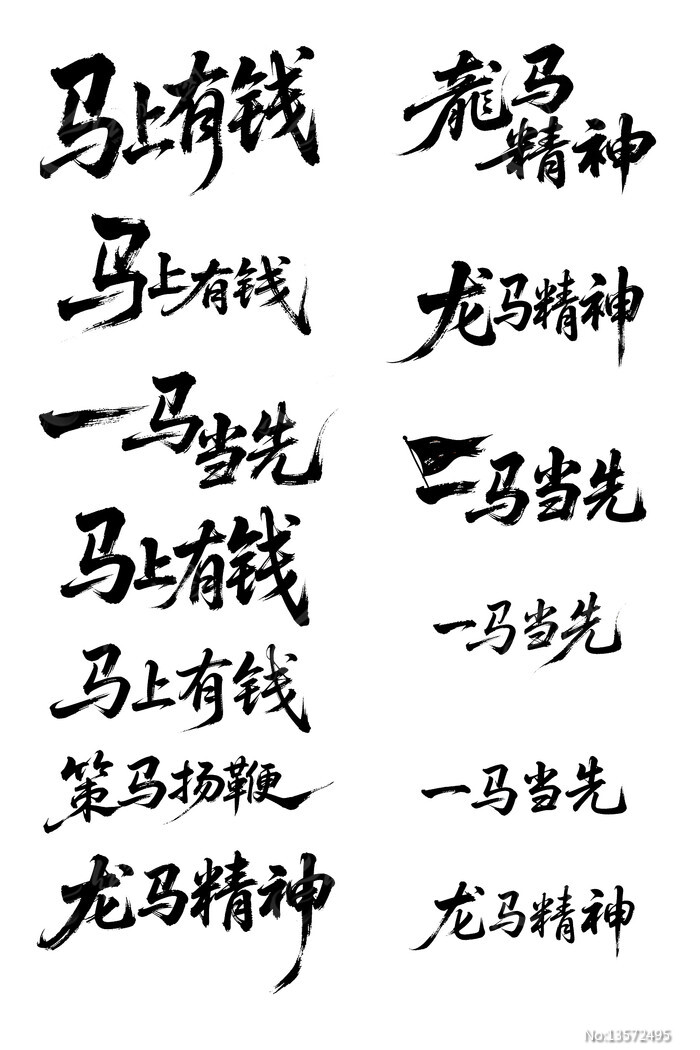 马上有钱
马上有钱
一马当先
马上有钱
马上有钱
策马扬鞭
龙马精神
龍马
精神
龙马精神
一马当先
一马当先
一马当先
龙马精神
No:13572495